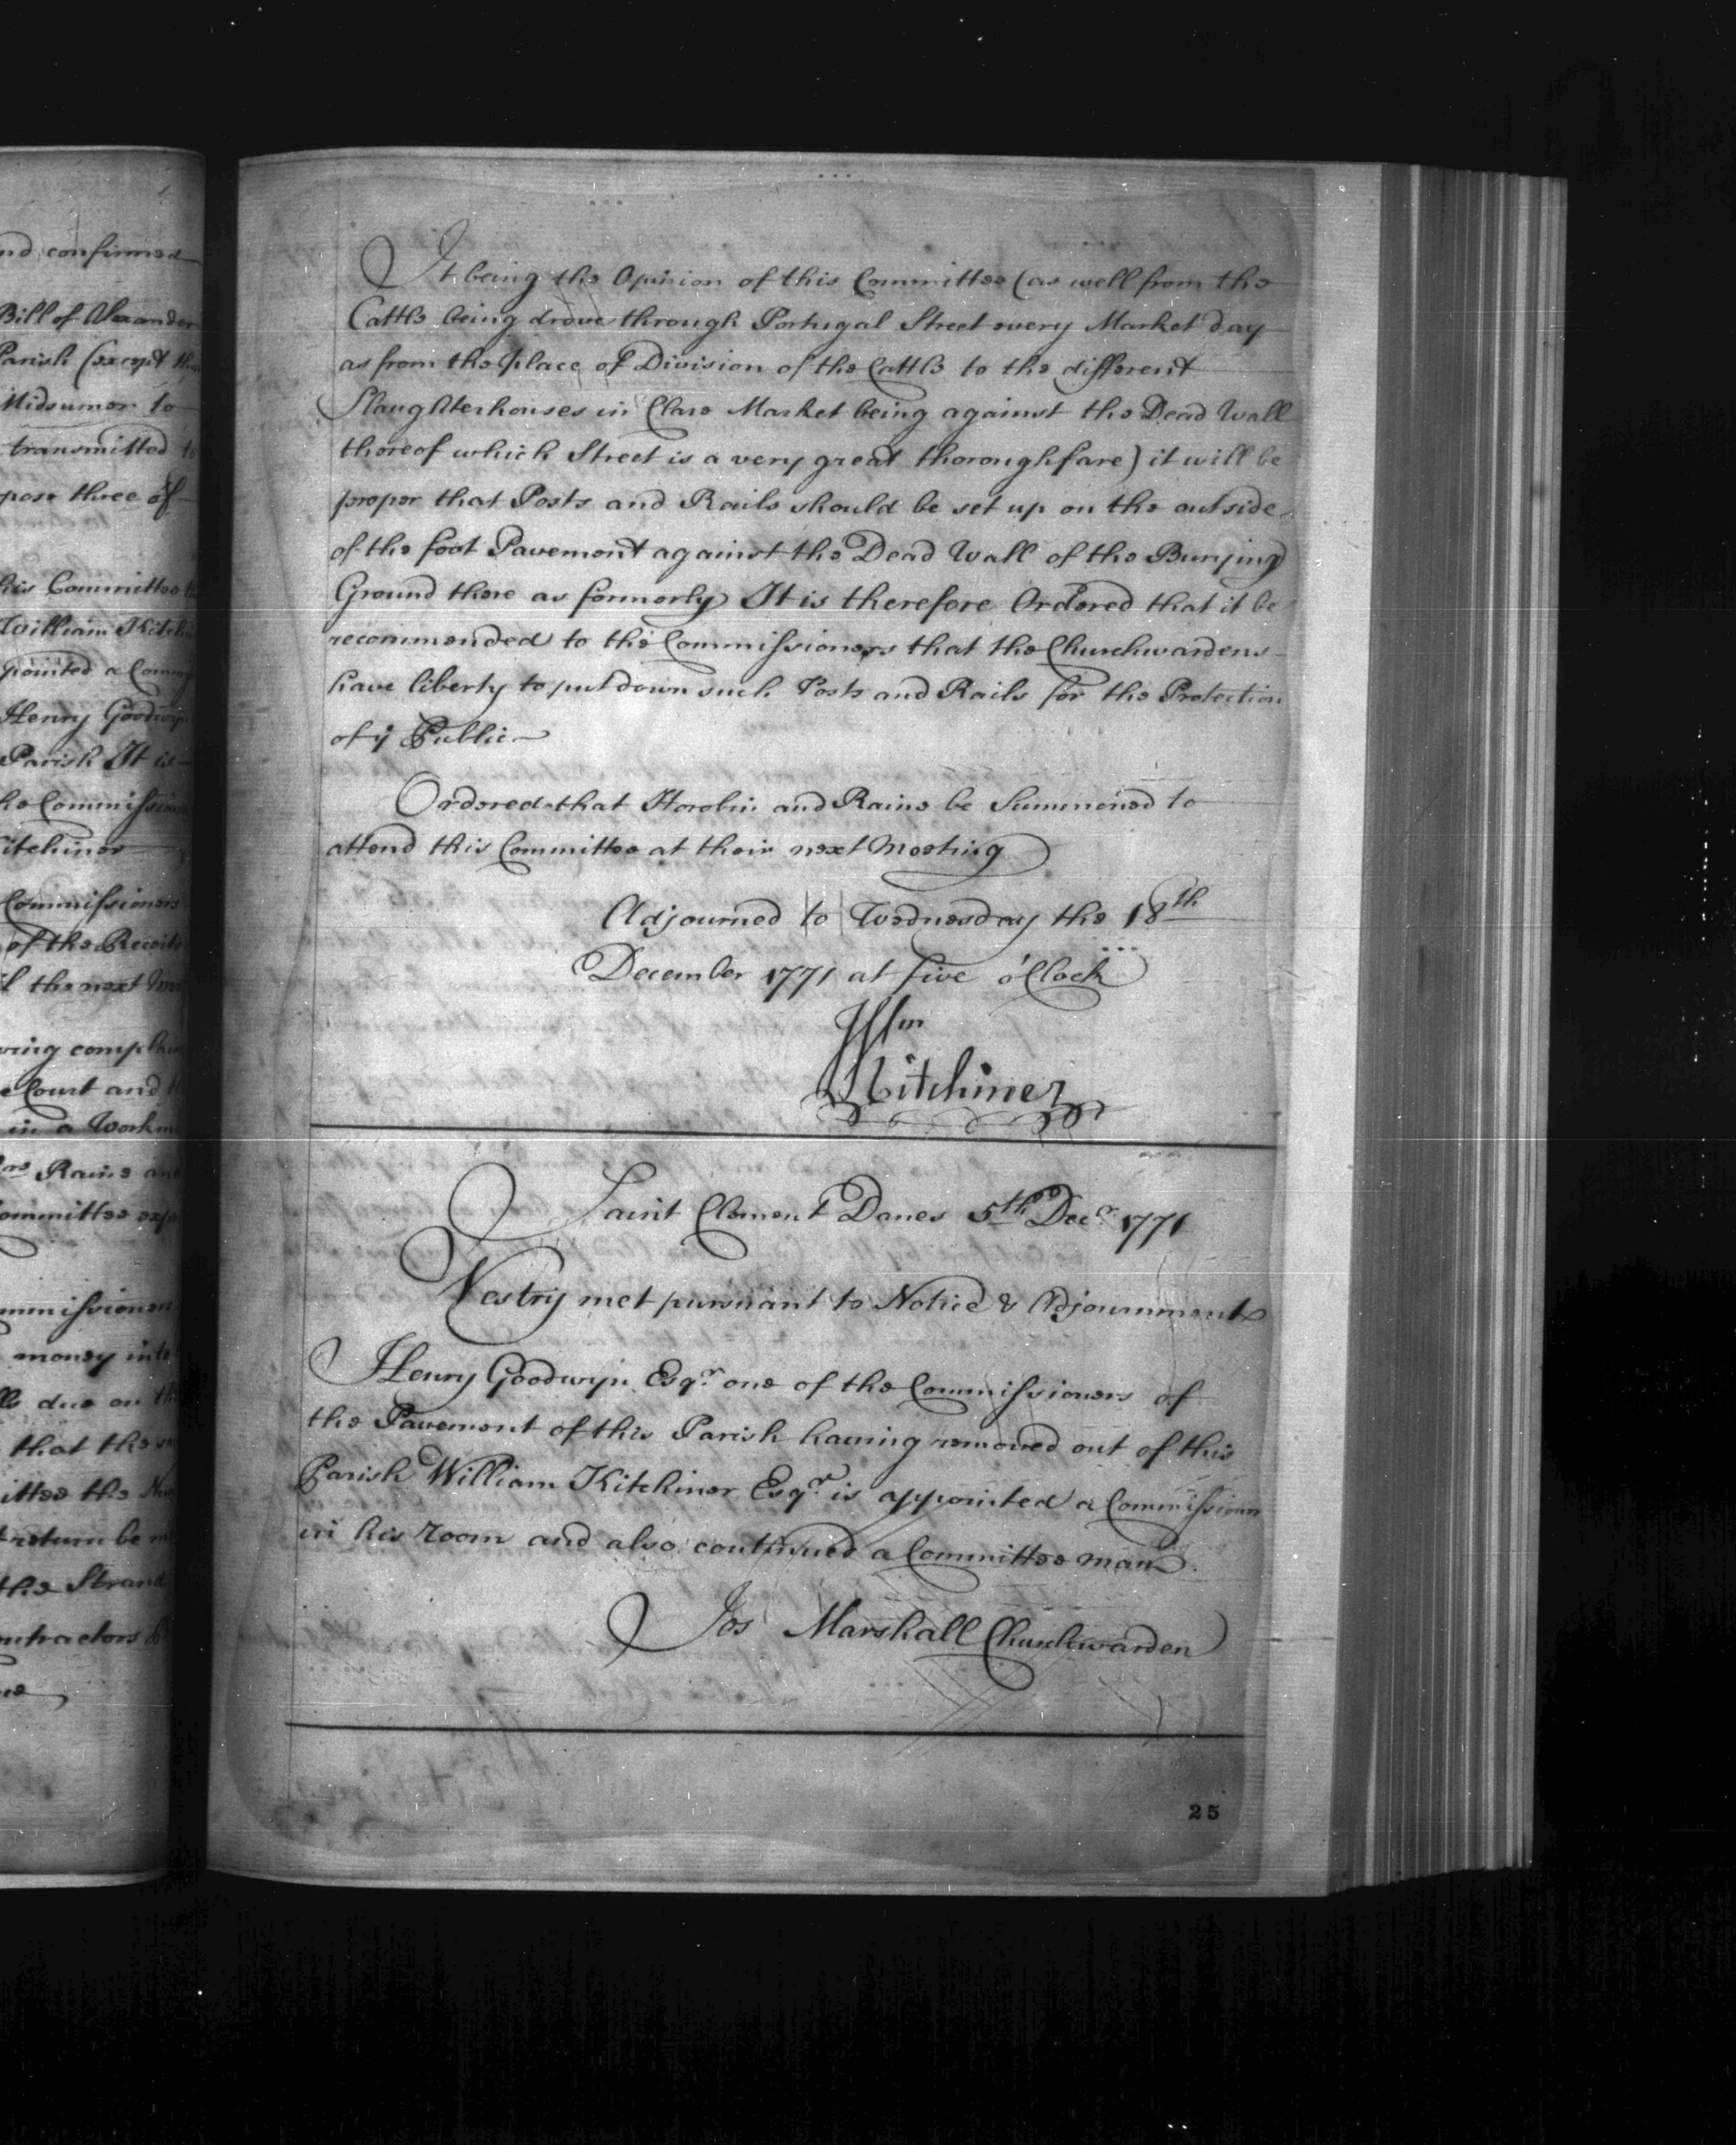 nd confirmed
Bill of Alexander
Parish (except the
Midsumer to
transmitted to
pose three of
his Committee
William Kitch
pointed a Comm
Henry Goodwyn
Parish It is
he Commission
Kitchiner
Commissioners
of the Receits
l the next
ving complain
e Court and
in a Workm
Rains an
ommittee exp
mmissioners
money into
due on th
that the
ittee the
return be m
the Strand
ntractors
It being the Opinion of this Committee (as well from the
Cattle being drove through Portugal Street every Market day
as from the place of Division of the Cattle to the different
Slaughterhouses in Clare Market being against the Dead Wall
thereof which Street is a very great thoroughfare) it will be
proper that Posts and Rails should be set up on the outside
of the foot Pavement against the Dead Wall of the Burying
Ground there as formerly It is therefore Ordered that it be
recommended to the Commissioners that the Churchwardens
have liberty to put down such Posts and Rails for the Protection
of ye Public
Ordered that Horobin and Rains be Summoned to
attend this Committee at their next Meeting
Adjourned to Wednesday the 18th
December 1771 at five o'Clock
Wm
Kitchiner
Saint Clement Danes 5th Decr. 1771
Vestry met pursuant to Notice & Adjournment
Henry Goodwyn Esqr. one of the Commissioners of
the Pavement of this Parish having removed out of this
Parish William Kitchiner Esqr. is appointed a Commissioner
in his room and also continued a Committee man
Jos Marshall Churchwarden
25